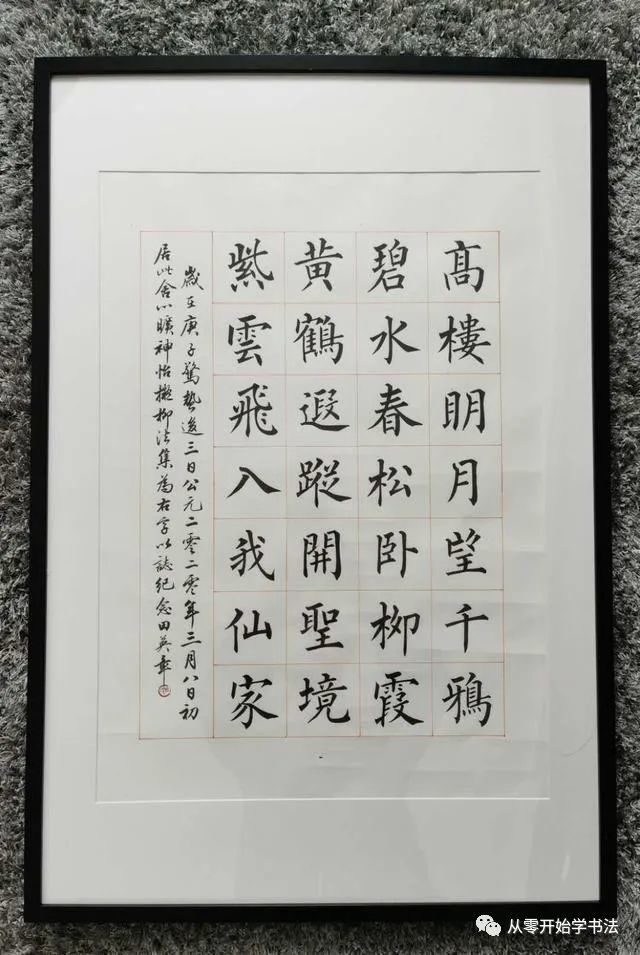 髙樓眀月望千鴉
碧水春松卧柳霞
黄鶴遐蹤開聖境
紫雲飛入我仙家
歲在庚子驚蟄後三日公元二零二零年三月八日初
居此舍心曠神怡擬柳法集為右字以誌紀念田英章
从零开始学书法